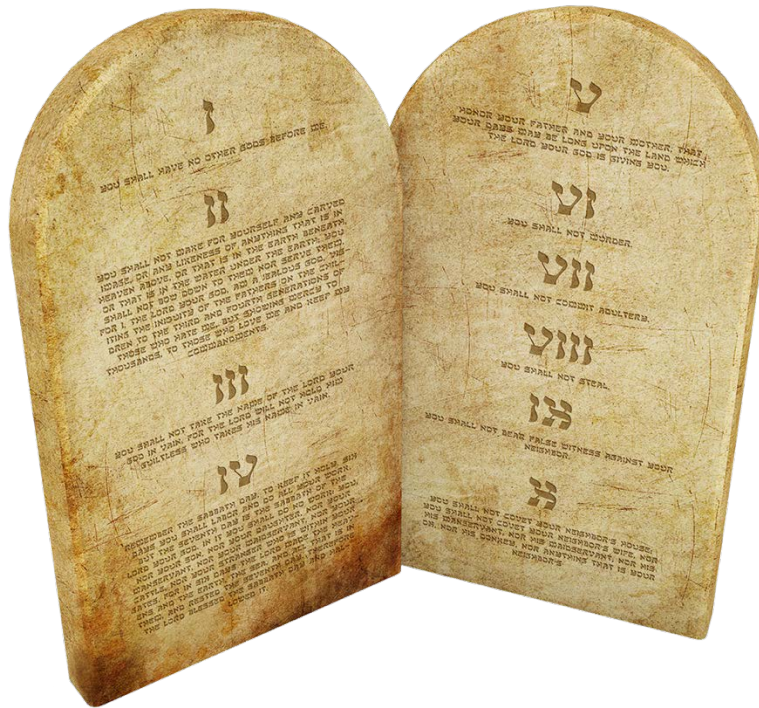 I
YOU SHALL HAVE NO OTHER GODS BEFORE ME.
II
YOU SHALL NOT MAKE FOR YOURSELF ANY CARVED
IMAGE, OR ANY LIKENESS OF ANYTHING THAT IS IN
HEAVEN ABOVE, OR THAT IS IN THE EARTH BENEATH,
OR THAT IS IN THE WATER UNDER THE EARTH; YOU
SHALL NOT BOW DOWN TO THEM NOR SERVE THEM.
FOR I, THE LORD YOUR GOD, AM A JEALOUS GOD, VIS-
ITING THE INIQUITY OF THE FATHERS ON THE CHIL-
DREN TO THE THIRD AND FOURTH GENERATIONS OF
THOSE WHO HATE ME, BUT SHOWING MERCY TO
THOUSANDS, TO THOSE WHO LOVE ME AND KEEP MY
COMMANDMENTS.
III
YOU SHALL NOT TAKE THE NAME OF THE LORD YOUR
GOD IN VAIN, FOR THE LORD WILL NOT HOLD HIM
GUILTLESS WHO TAKES HIS NAME IN VAIN.
IV
REMEMBER THE SABBATH DAY, TO KEEP IT HOLY. SIX
DAYS YOU SHALL LABOR AND DO ALL YOUR WORK,
BUT THE SEVENTH DAY IS THE SABBATH OF THE
LORD YOUR GOD. IN IT YOU SHALL DO NO WORK: YOU,
NOR YOUR SON, NOR YOUR DAUGHTER, NOR YOUR
MANSERVANT, NOR YOUR MAIDSERVANT, NOR YOUR
CATTLE, NOR YOUR STRANGER WHO IS WITHIN YOUR
GATES. FOR IN SIX DAYS THE LORD MADE THE HEAV-
ENS AND THE EARTH, THE SEA, AND ALL THAT IS IN
THEM, AND RESTED THE SEVENTH DAY. THEREFORE
THE LORD BLESSED THE SABBATH DAY AND HAL-
LOWED IT.
V
HONOR YOUR FATHER AND YOUR MOTHER, THAT
YOUR DAYS MAY BE LONG UPON THE LAND WHICH
THE LORD YOUR GOD IS GIVING YOU.
VI
YOU SHALL NOT MURDER.
VII
YOU SHALL NOT COMMIT ADULTERY.
VIII
YOU SHALL NOT STEAL.
XI
YOU SHALL NOT BEAR FALSE WITNESS AGAINST YOUR
NEIGHBOR.
X
YOU SHALL NOT COVET YOUR NEIGHBOR'S HOUSE;
YOU SHALL NOT COVET YOUR NEIGHBOR'S WIFE, NOR
HIS MANSERVANT, NOR HIS MAIDSERVANT, NOR HIS
OX, NOR HIS DONKEY, NOR ANYTHING THAT IS YOUR
NEIGHBOR'S